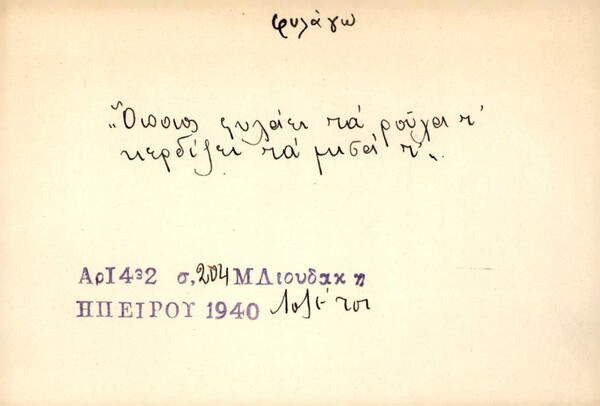 φυλάγω
„Ὅποιος φυλάει τά ροῦχα τ'
κερδίζει τά μισά τ'„
Αρ1432 σ, 204 Μ Λιουδακη
ΗΠΕΙΡΟΥ 1940